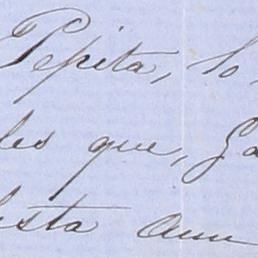 Pepita, lo
les que, Ga
esta aun